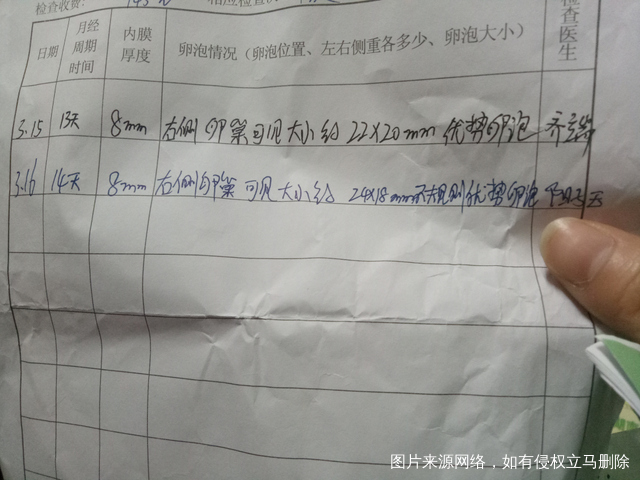 检查收费:
日期 月经周期时间 内膜厚度 卵泡情况（卵泡位置、左右侧重各多少、卵泡大小） 检查医生
3.15 13天 8mm 右侧卵巢可见大小约22×20mm优势卵泡
3.16 14天 8mm 右侧卵巢可见大小约24×18mm不规则优势卵泡
图片来源网络，如有侵权立马删除